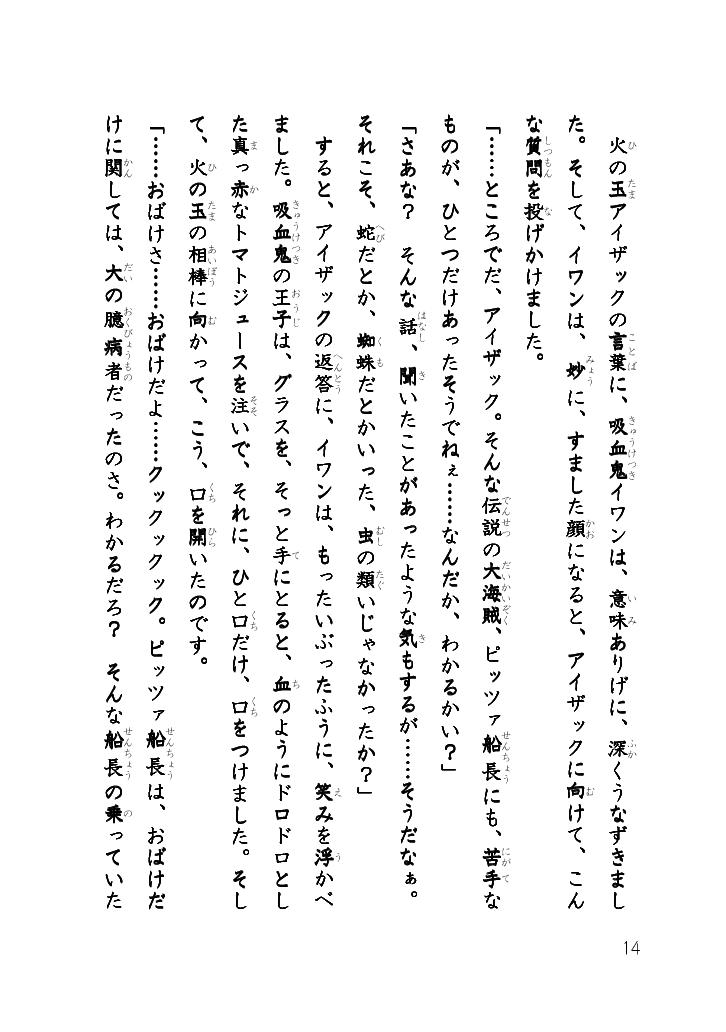 火の玉アイザックの言葉に、吸血鬼イワンは、意味ありげに、深くうなずきまし
た。そして、イワンは、妙に、すました顔になると、アイザックに向けて、こん
な質問を投げかけました。
「……ところでだ、アイザック。そんな伝説の大海賊、ピッツァ船長にも、苦手な
ものが、ひとつだけあったそうでねぇ……なんだか、わかるかい？」
「さあな？　そんな話、聞いたことがあったような気もするが……そうだなぁ。
それこそ、蛇だとか、蜘蛛だとかいった、虫の類いじゃなかったか？」
　すると、アイザックの返答に、イワンは、もったいぶったふうに、笑みを浮かべ
ました。吸血鬼の王子は、グラスを、そっと手にとると、血のようにドロドロとし
た真っ赤なトマトジュースを注いで、それに、ひと口だけ、口をつけました。そし
て、火の玉の相棒に向かって、こう、口を開いたのです。
「……おばけさ……おばけだよ……クックックック。ピッツァ船長は、おばけだ
けに関しては、大の臆病者だったのさ。わかるだろ？　そんな船長の乗っていた
14